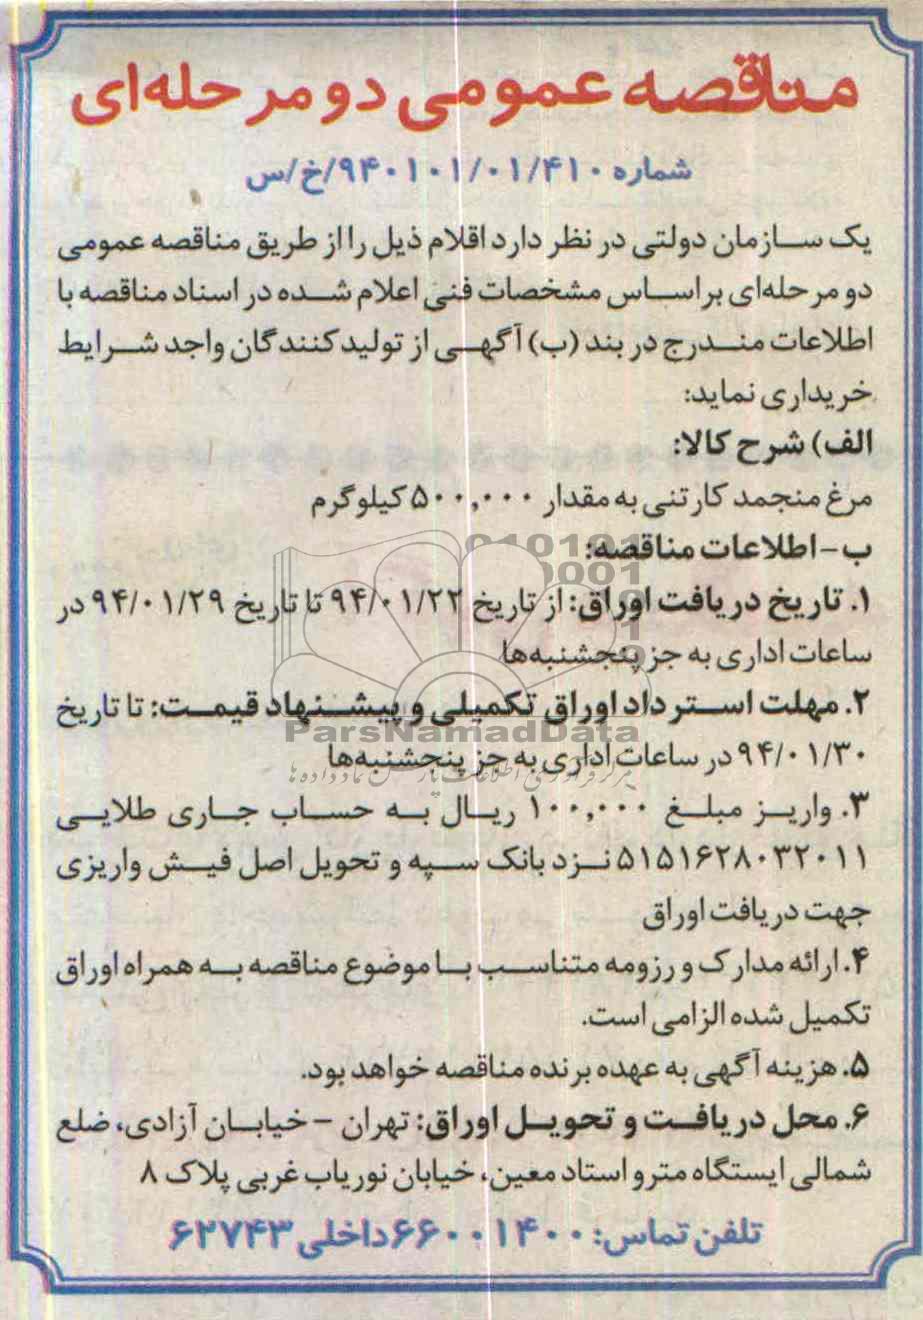 مناقصه عمومی دو مرحله‌ای
شماره ۹۴۰۱۰۱/۰۱/۴۱۰/خ/س
یک سازمان دولتی در نظر دارد اقلام ذیل را از طریق مناقصه عمومی
دو مرحله‌ای براساس مشخصات فنی اعلام شده در اسناد مناقصه با
اطلاعات مندرج در بند (ب) آگهی از تولیدکنندگان واجد شرایط
خریداری نماید:
الف) شرح کالا:
مرغ منجمد کارتنی به مقدار ۵۰۰,۰۰۰ کیلوگرم
ب-اطلاعات مناقصه:
۱. تاریخ دریافت اوراق: از تاریخ ۹۴/۰۱/۲۲ تا تاریخ ۹۴/۰۱/۲۹ در
ساعات اداری به جز پنجشنبه‌ها
۲. مهلت استرداد اوراق تکمیلی و پیشنهاد قیمت: تا تاریخ
۹۴/۰۱/۳۰ در ساعات اداری به جز پنجشنبه‌ها
۳. واریز مبلغ ۱۰۰,۰۰۰ ریال به حساب جاری طلایی
۵۱۵۱۶۲۸۰۳۲۰۱۱ نزد بانک سپه و تحویل اصل فیش واریزی
جهت دریافت اوراق
۴. ارائه مدارک و رزومه متناسب با موضوع مناقصه به همراه اوراق
تکمیل شده الزامی است.
۵. هزینه آگهی به عهده برنده مناقصه خواهد بود.
۶. محل دریافت و تحویل اوراق: تهران - خیابان آزادی، ضلع
شمالی ایستگاه مترو استاد معین، خیابان نوریاب غربی پلاک ۸
تلفن تماس: ۶۶۰۰۱۴۰۰ داخلی ۶۲۷۴۳
ParsNamadData